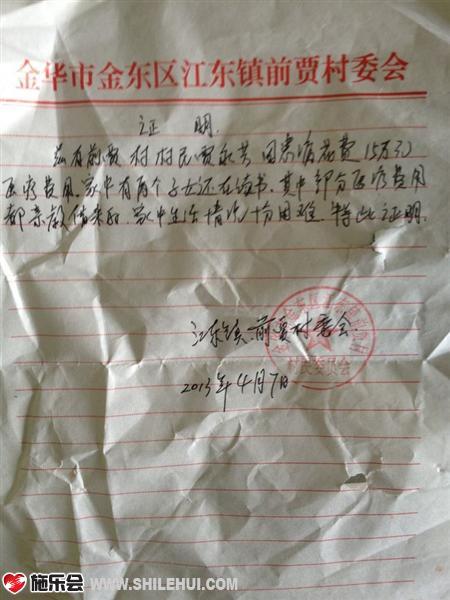 金华市金东区江东镇前贾村委会
证 明
兹有前贾村村民贾永共因患病花费15万元
医疗费用.家中有两个子女还在读书.其中部分医疗费用
都亲戚借来的.家中生活情况十分困难.特此证明.
江东镇.前贾村委会
村民委员会
2013年4月7日
施乐会 www.SHILEHUI.com